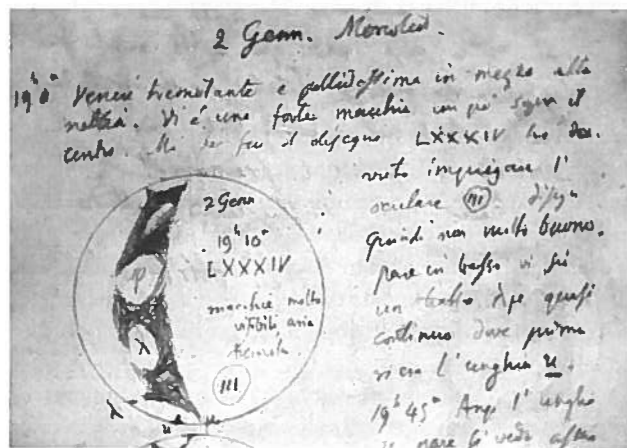 2 Genn. Mercoledì.
19h 0m Venere tremolante e pallidissima in mezzo alla
nebbia. Vi è una forte macchia un po' sopra il
centro. Ma per fare il disegno LXXXIV ho do-
vuto impiegare l'
oculare III
quindi non molto buono.
pare in basso vi sia
un tratto λμ quasi
continuo dove prima
vi era l'unghia u.
19h 45m Anzi l'unghia
si pare
2 Genn
19h 10m
LXXXIV
macchie molto
visibili aria
tremola
III
φ
λ
λ
u
μ